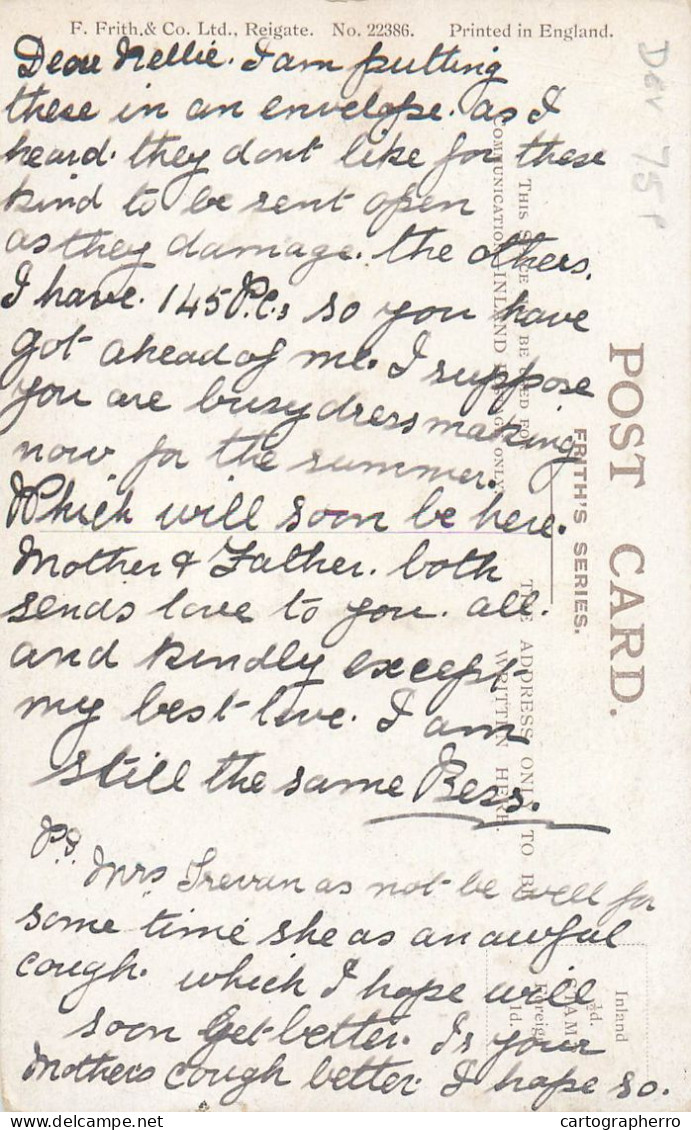 F. Frith.& Co. Ltd., Reigate. No. 22386. Printed in England.
Dear Nellie. I am putting
these in an envelope. as I
heard. they dont like for these
kind to be sent open
as they damage. the others.
I have. 145 P.C.s so you have
got ahead of me. I suppose
you are busy dressmaking
now for the summer.
Which will soon be here.
Mother & Father. both
sends love to you. all.
and kindly except
my best love. I am
still the same Bess.
Ps. Mrs Trevan as not be well for
some time she as an awful
cough. which I hope will
soon get better. Is your
Mothers cough better. I hope so.
Dev 75p
POST CARD.
FRITH'S SERIES.
THIS SPACE BE USED FOR
COMMUNICATION INLAND ONLY
THE ADDRESS ONLY TO BE
WRITTEN HERE.
Inland
½d.
STAMP
Foreign
1d.
cartographerro